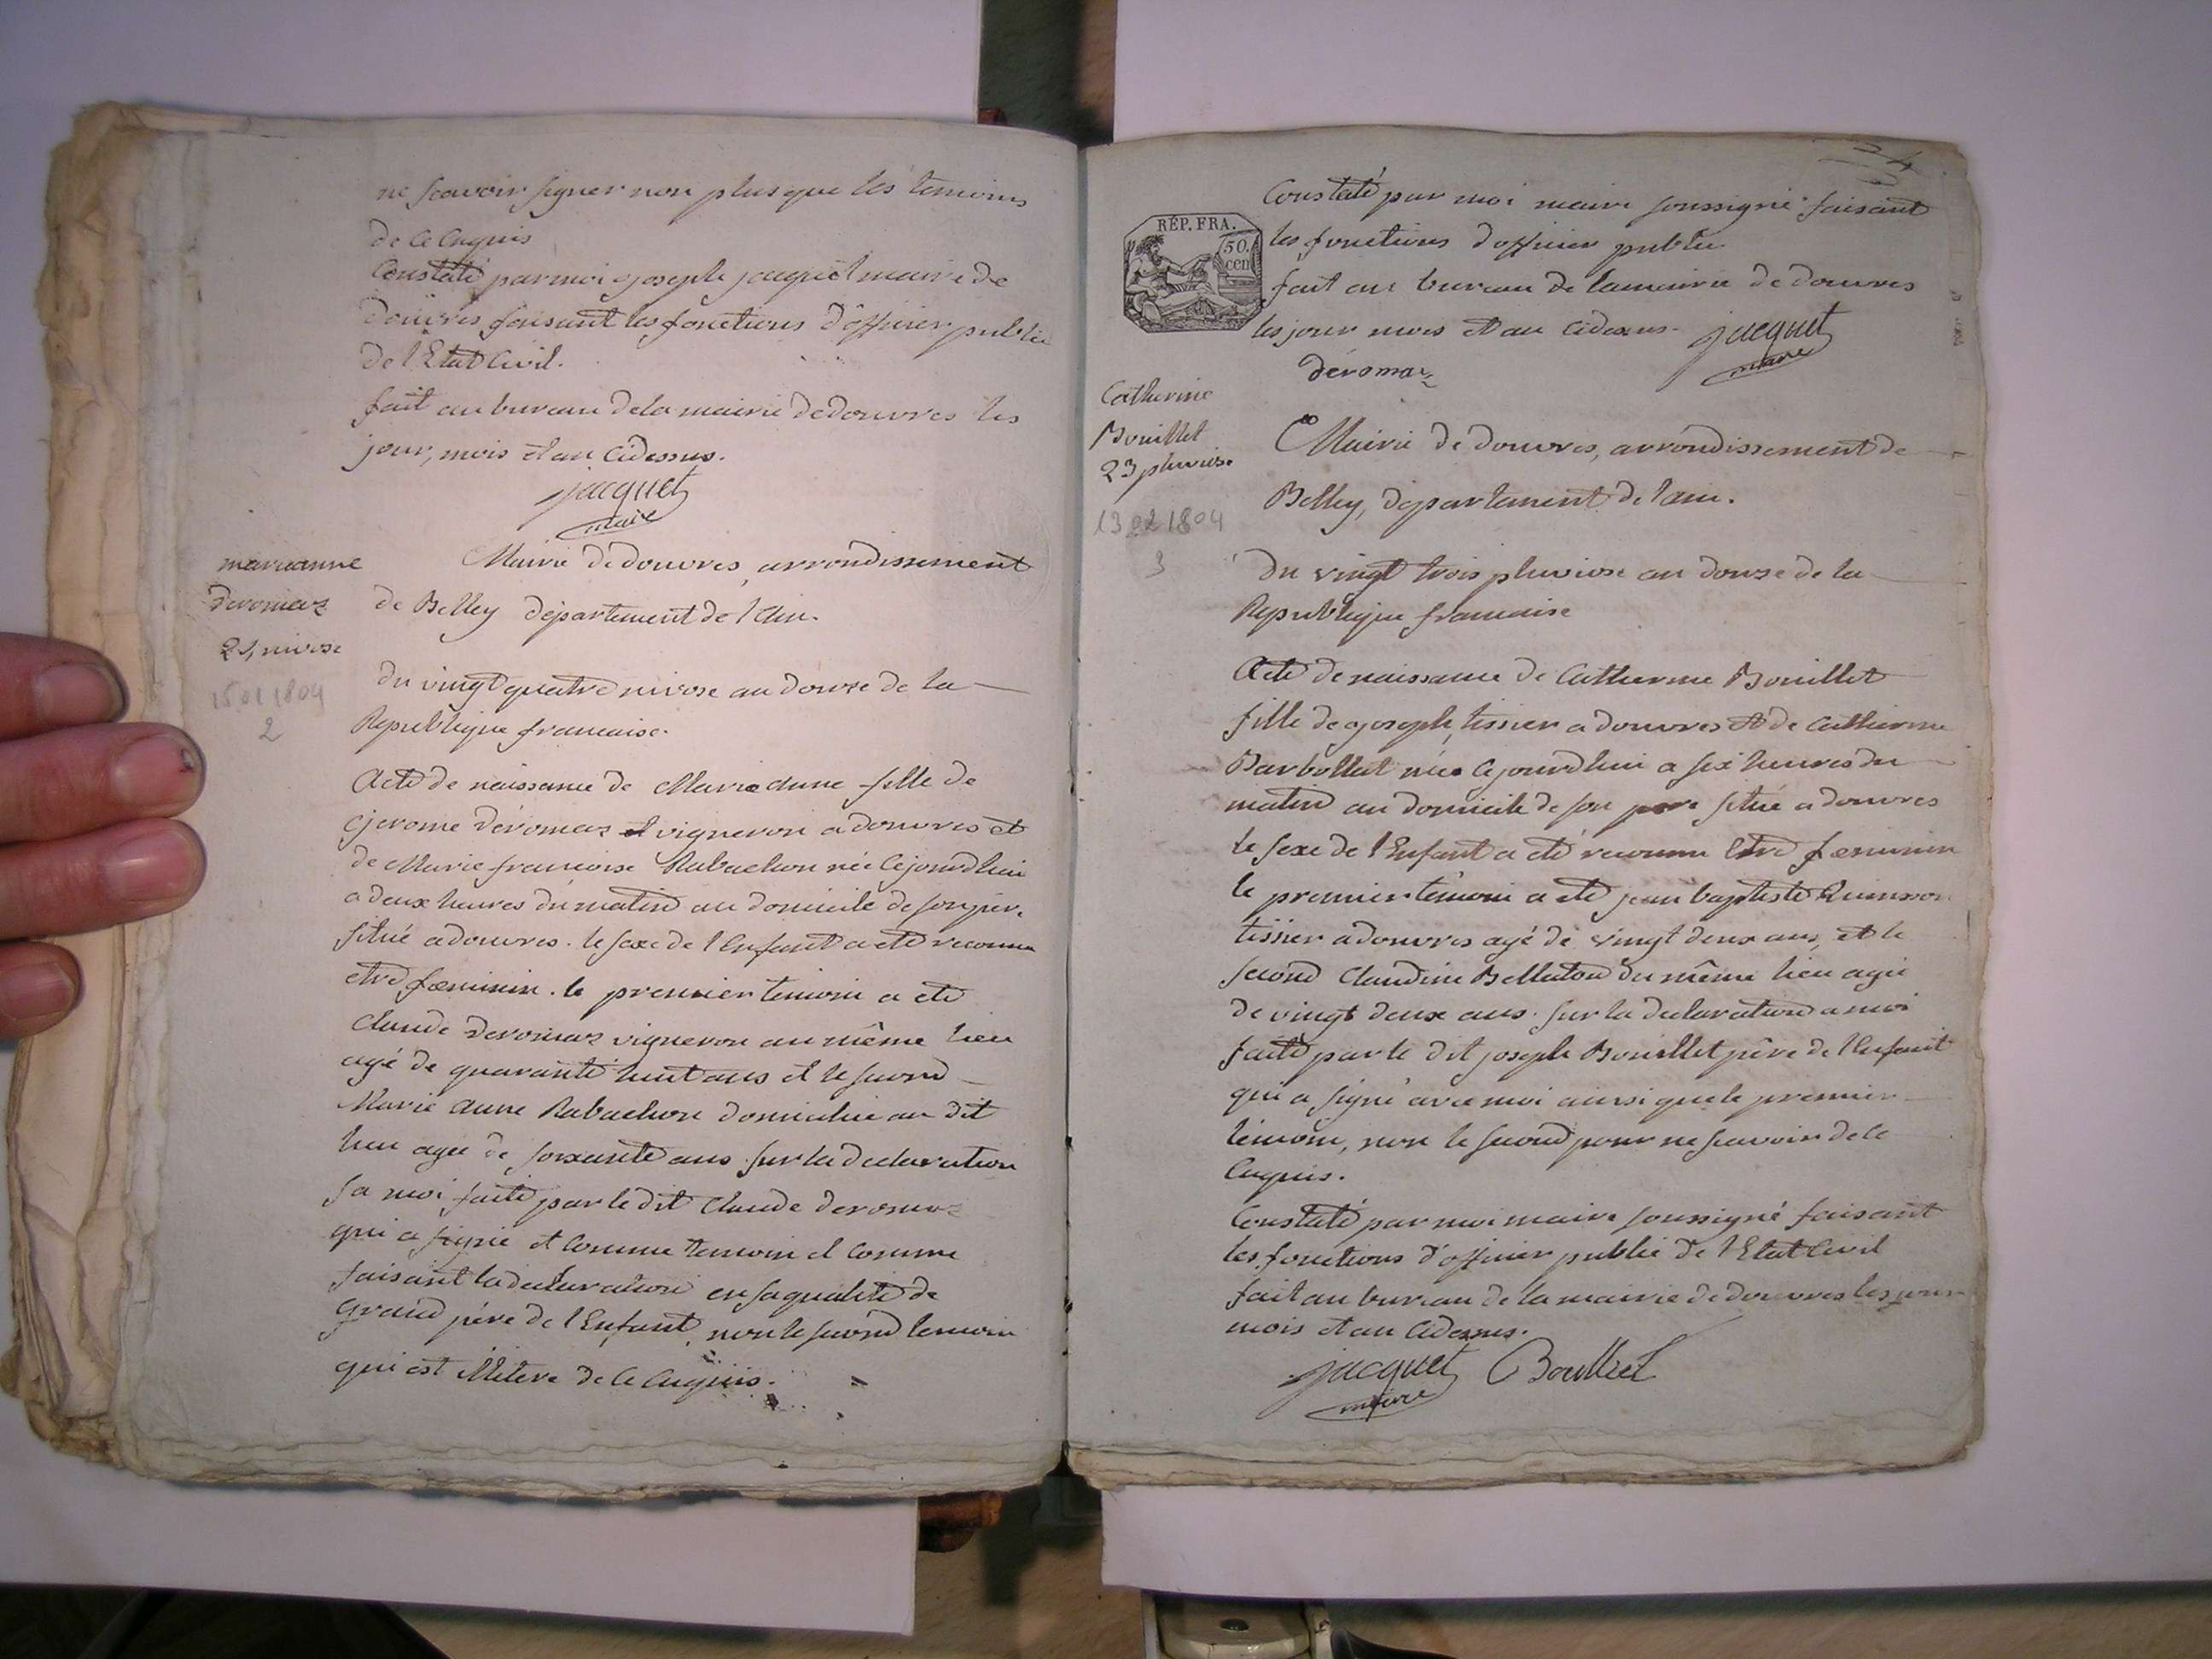 ne scavoir signer non plus que les temoins
de ce enquis
Constaté par moi joseph jacquet maire de
douvres faisant les fonctions d'officier public
de l'Etat Civil.
fait au bureau de la mairie de douvres les
jour, mois et an cidessus.
jacquet
maire
marianne
deromas
24 nivose
15 01 1804
2
Mairie de douvres, arrondissement
de Belley département de l'Ain.
du vingt quatre nivose an douze de la
Republique francaise.
Acte de naissance de Marie Anne fille de
jerome déromas vigneron a douvres et
de Marie francoise Rabachon née cejourdhui
a deux heures du matin au domicile de son pere
situé a douvres. le sexe de l'Enfant a eté reconnu
etre fœminin. le premier temoin a eté
Claude deromas vigneron au même lieu
agé de quarante huit ans et le second
Marie Anne Rabachon domiciliée au dit
lieu agée de soixante ans. sur la declaration
a moi faite par le dit Claude deromas
qui a signé et comme temoin et comme
faisant la declaration en sa qualité de
grand pére de l'Enfant, non le second temoin
qui est illitere de ce enquis.
RÉP. FRA.
50.
cen
Constaté par moi maire soussigné faisant
les fonctions d'officier public
fait au bureau de la mairie de douvres
les jour mois et an cidessus. jacquet
maire
déromaz
Catherine
Bouillet
23 pluviose
13 02 1804
3
Mairie de douvres, arrondissement de
Belley, département de l'ain.
du vingt trois pluviose an douze de la
Republique francaise
Acte de naissance de Catherine Bouillet
fille de joseph, tissier a douvres et de Catherine
Barbollat née cejourdhui a six heures du
matin au domicile de son pere situé a douvres
le sexe de l'Enfant a eté reconnu etre fœminin
le premier temoin a eté jean baptiste Quinson
tissier a douvres agé de vingt deux ans, et le
second Claudine Bellaton du même lieu agée
de vingt deux ans. sur la declaration a moi
faite par le dit joseph Bouillet pére de l'Enfant
qui a signé avec moi ainsi que le premier
témoin, non le second pour ne scavoir de ce
enquis.
Constaté par moi maire soussigné faisant
les fonctions d'officier public de l'Etat Civil
fait au bureau de la mairie de douvres les jour
mois et an cidessus.
jacquet Boulliet
maire